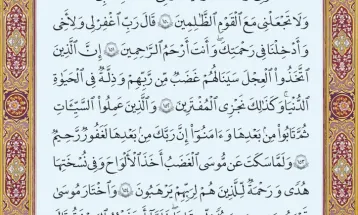 وَلَا تَجْعَلْنِي مَعَ ٱلْقَوْمِ ٱلظَّٰلِمِينَ ١٥٠ قَالَ رَبِّ ٱغْفِرْ لِي وَلِأَخِي
وَأَدْخِلْنَا فِي رَحْمَتِكَ وَأَنتَ أَرْحَمُ ٱلرَّٰحِمِينَ ١٥١ إِنَّ ٱلَّذِينَ
ٱتَّخَذُوا۟ ٱلْعِجْلَ سَيَنَالُهُمْ غَضَبٌ مِّن رَّبِّهِمْ وَذِلَّةٌ فِي ٱلْحَيَوٰةِ
ٱلدُّنْيَا وَكَذَٰلِكَ نَجْزِي ٱلْمُفْتَرِينَ ١٥٢ وَٱلَّذِينَ عَمِلُوا۟ ٱلسَّيِّـَٔاتِ
ثُمَّ تَابُوا۟ مِنۢ بَعْدِهَا وَءَامَنُوٓا۟ إِنَّ رَبَّكَ مِنۢ بَعْدِهَا لَغَفُورٌ رَّحِيمٌ
١٥٣ وَلَمَّا سَكَتَ عَن مُّوسَى ٱلْغَضَبُ أَخَذَ ٱلْأَلْوَاحَ وَفِي نُسْخَتِهَا
هُدًى وَرَحْمَةٌ لِّلَّذِينَ هُمْ لِرَبِّهِمْ يَرْهَبُونَ ١٥٤ وَٱخْتَارَ مُوسَىٰ